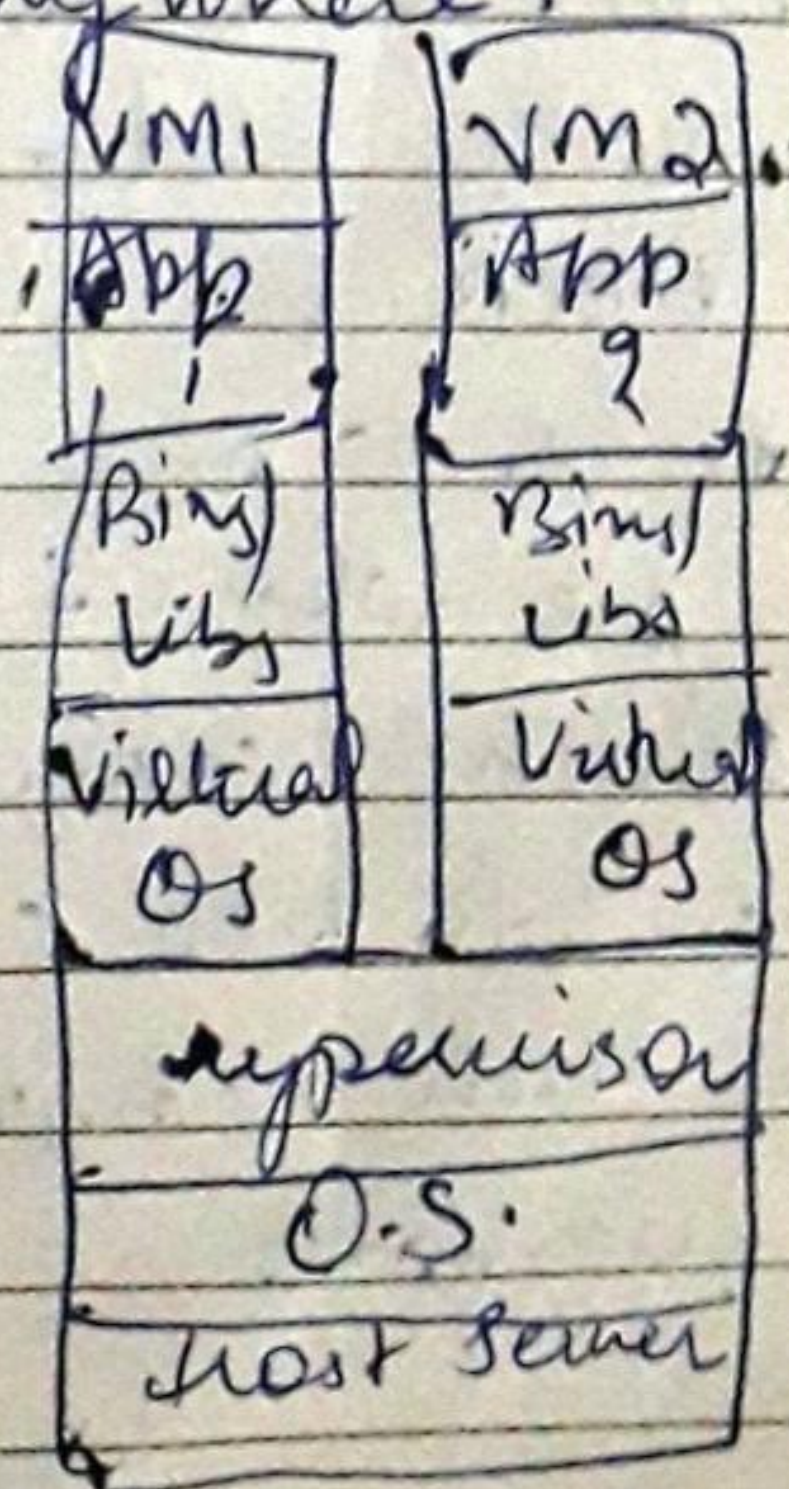 VM1
App
1
Bins/
Libs
Virtual
OS
VM2
App
2
Bins/
Libs
Virtual
OS
Hypervisor
O.S.
Host Server